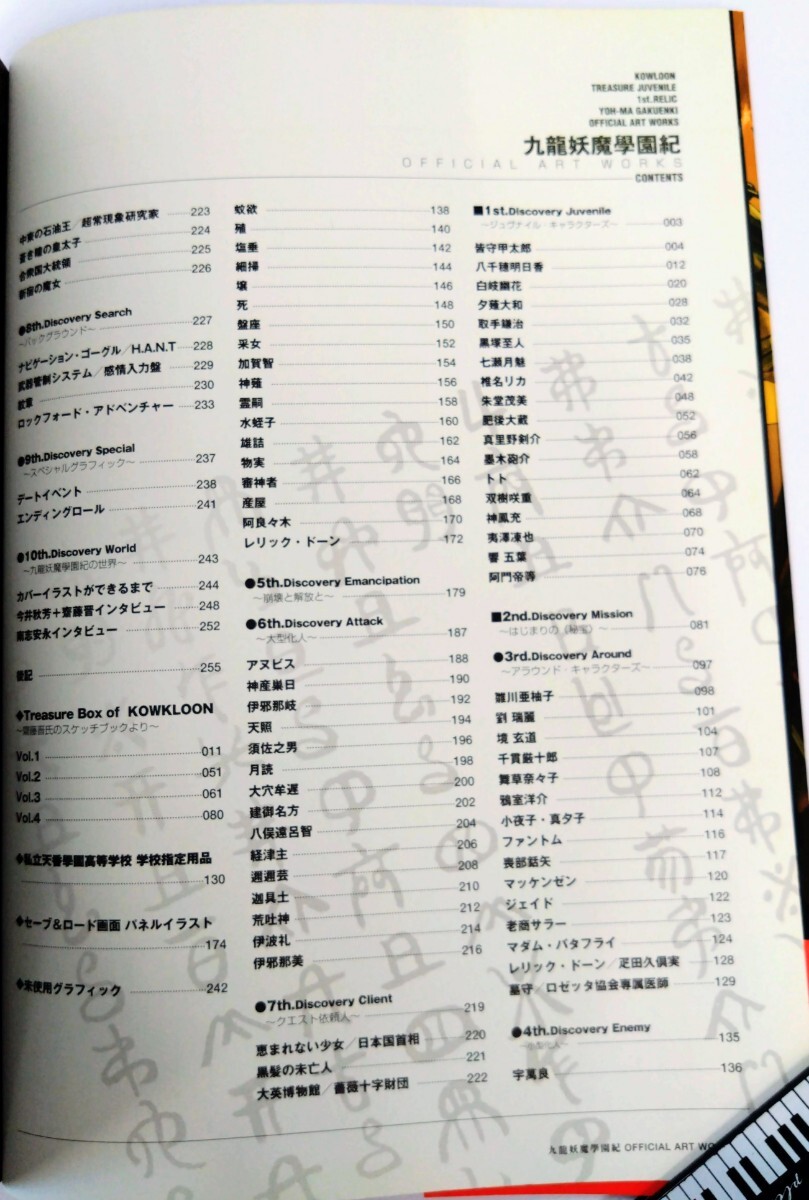 KOWLOON
TREASURE JUVENILE
1st.RELIC
YOH-MA GAKUENKI
OFFICIAL ART WORKS
九龍妖魔學園紀
OFFICIAL ART WORKS
CONTENTS
■1st.Discovery Juvenile
～ジュヴナイル・キャラクターズ～ 003
皆守甲太郎 004
八千穂明日香 012
白岐幽花 020
夕薙大和 028
取手鎌治 032
黒塚至人 035
七瀬月魅 038
椎名リカ 042
朱堂茂美 048
肥後大蔵 052
真里野剣介 056
墨木砲介 058
トト 062
双樹咲重 064
神鳳充 068
夷澤凍也 070
響 五葉 074
阿門帝等 076
■2nd.Discovery Mission
～はじまりの《秘宝》～ 081
●3rd.Discovery Around
～アラウンド・キャラクターズ～ 097
雛川亜柚子 098
劉 瑞麗 101
境 玄道 104
千貫厳十郎 107
舞草奈々子 108
鴉室洋介 112
小夜子・真夕子 114
ファントム 116
喪部銛矢 117
マッケンゼン 120
ジェイド 122
老商サラー 123
マダム・バタフライ 124
レリック・ドーン／疋田久倶実 128
墓守／ロゼッタ協会専属医師 129
●4th.Discovery Enemy
135
宇萬良 136
蚊欲 138
殖 140
塩垂 142
細掃 144
壌 146
死 148
盤座 150
采女 152
加賀智 154
神薙 156
雲嗣 158
水蛭子 160
雄詰 162
物実 164
審神者 166
産屋 168
阿良々木 170
レリック・ドーン 172
●5th.Discovery Emancipation
～崩壊と解放と～ 179
●6th.Discovery Attack
～大型化人～ 187
アヌビス 188
神産巣日 190
伊邪那岐 192
天照 194
須佐之男 196
月読 198
大穴牟遅 200
建御名方 202
八俣遠呂智 204
経津主 206
週週芸 208
迦具土 210
荒吐神 212
伊波礼 214
伊邪那美 216
●7th.Discovery Client
～クエスト依頼人～ 219
恵まれない少女／日本国首相 220
黒髪の未亡人 221
大英博物館／薔薇十字財団 222
中東の石油王／超常現象研究家 223
蒼き檜の皇太子 224
合衆国大統領 225
新宿の魔女 226
●8th.Discovery Search
～バックグラウンド～ 227
ナビゲーション・ゴーグル／H.A.N.T 228
武器管制システム／感情入力盤 229
紋章 230
ロックフォード・アドベンチャー 233
●9th.Discovery Special
～スペシャルグラフィック～ 237
デートイベント 238
エンディングロール 241
●10th.Discovery World
～九龍妖魔學園紀の世界～ 243
カバーイラストができるまで 244
今井秋芳＋齋藤晋インタビュー 248
南志安永インタビュー 252
後記 255
◆Treasure Box of KOWKLOON
～齋藤晋氏のスケッチブックより～
Vol.1 011
Vol.2 051
Vol.3 061
Vol.4 080
◆私立天香學園高等学校 学校指定用品
130
◆セーブ&ロード画面 パネルイラスト
174
◆未使用グラフィック 242
九龍妖魔學園紀 OFFICIAL ART WO